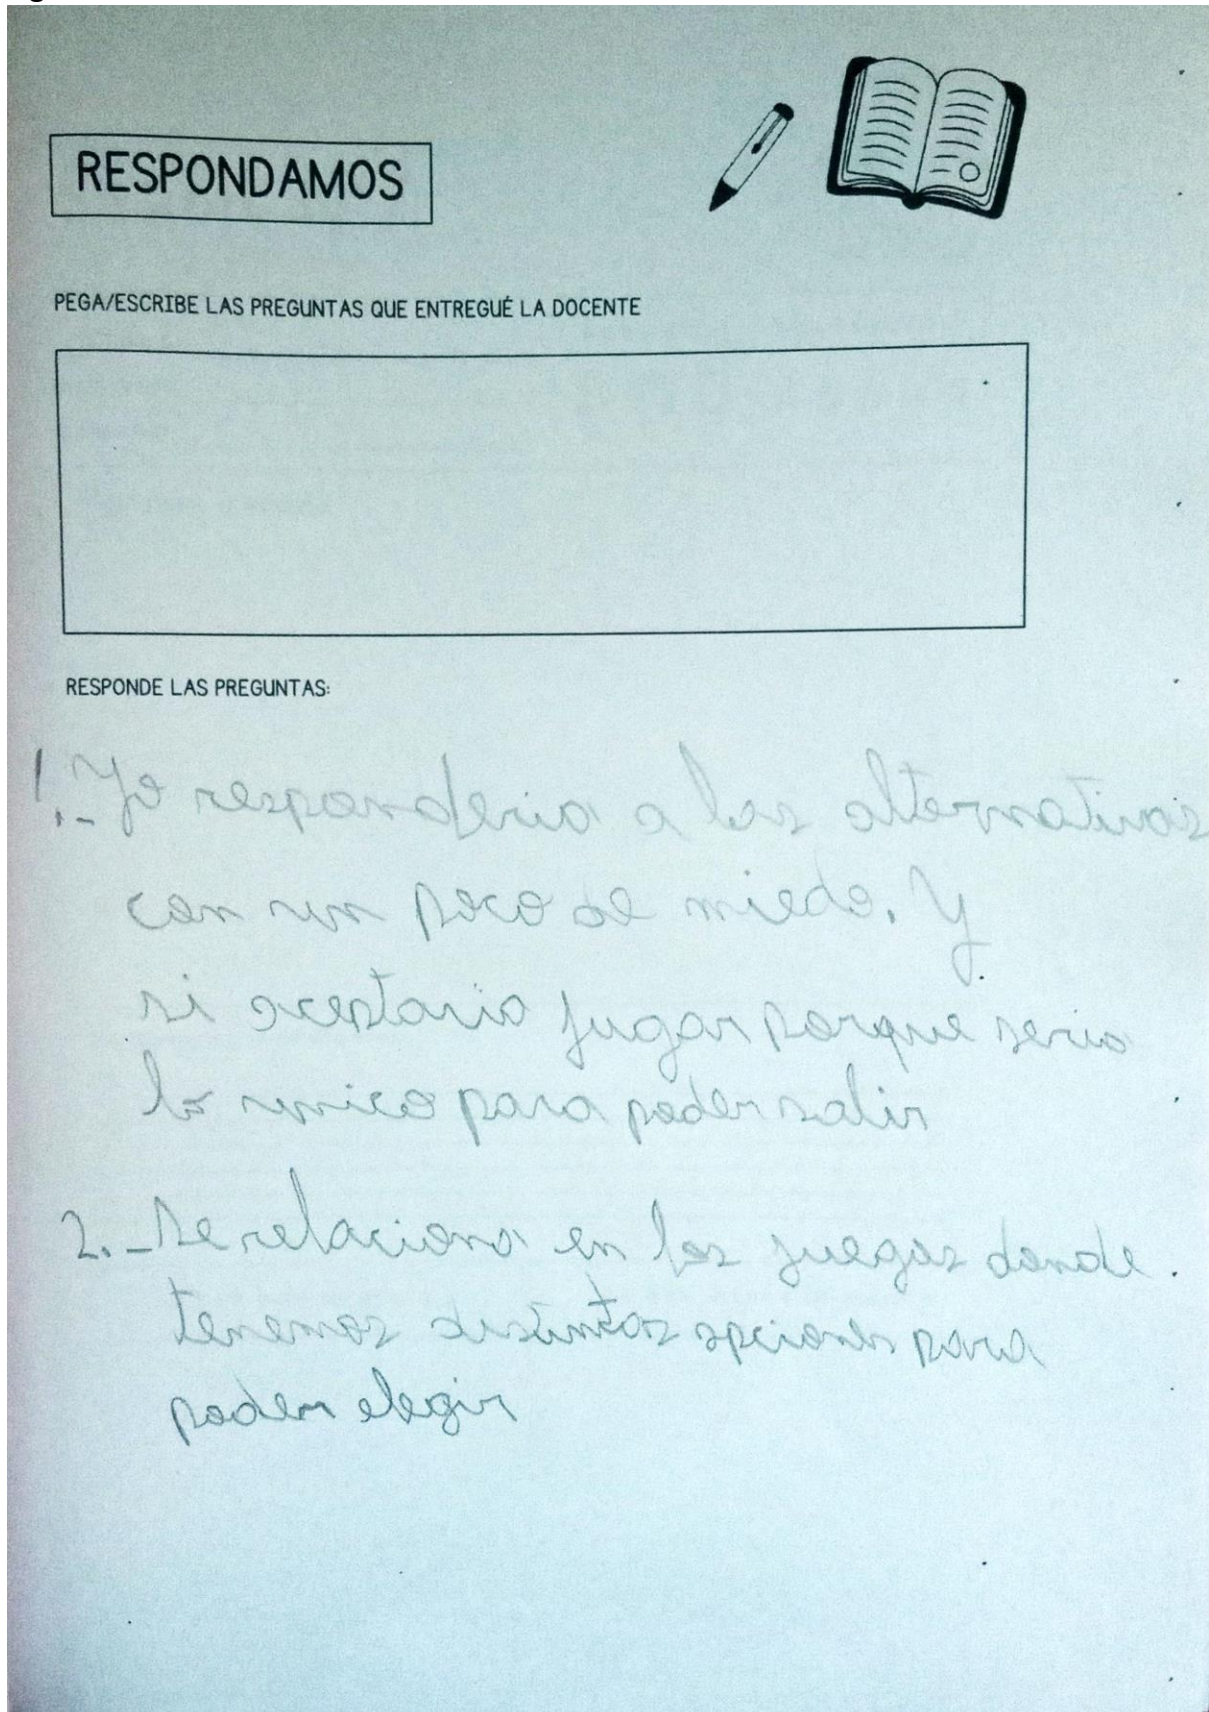 RESPONDAMOS
PEGA/ESCRIBE LAS PREGUNTAS QUE ENTREGUÉ LA DOCENTE
RESPONDE LAS PREGUNTAS:
1.- Yo responderia a las alternativas
con un poco de miedo. Y
si aceptaria jugar porque seria
lo unico para poder salir
2.- Se relaciona en los juegos donde
tenemos distintas opciones para
poder elegir